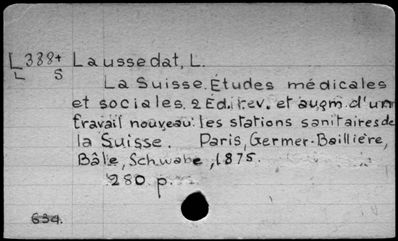 L338+ Laussedat, L.
L S
La Suisse. Études médicales
et sociales. 2 Éd. rev. et augm. d'un
travail nouveau: les stations sanitaires de
la Suisse. Paris, Germer-Baillière,
Bâle, Schwabe, 1875.
280 p.
634.